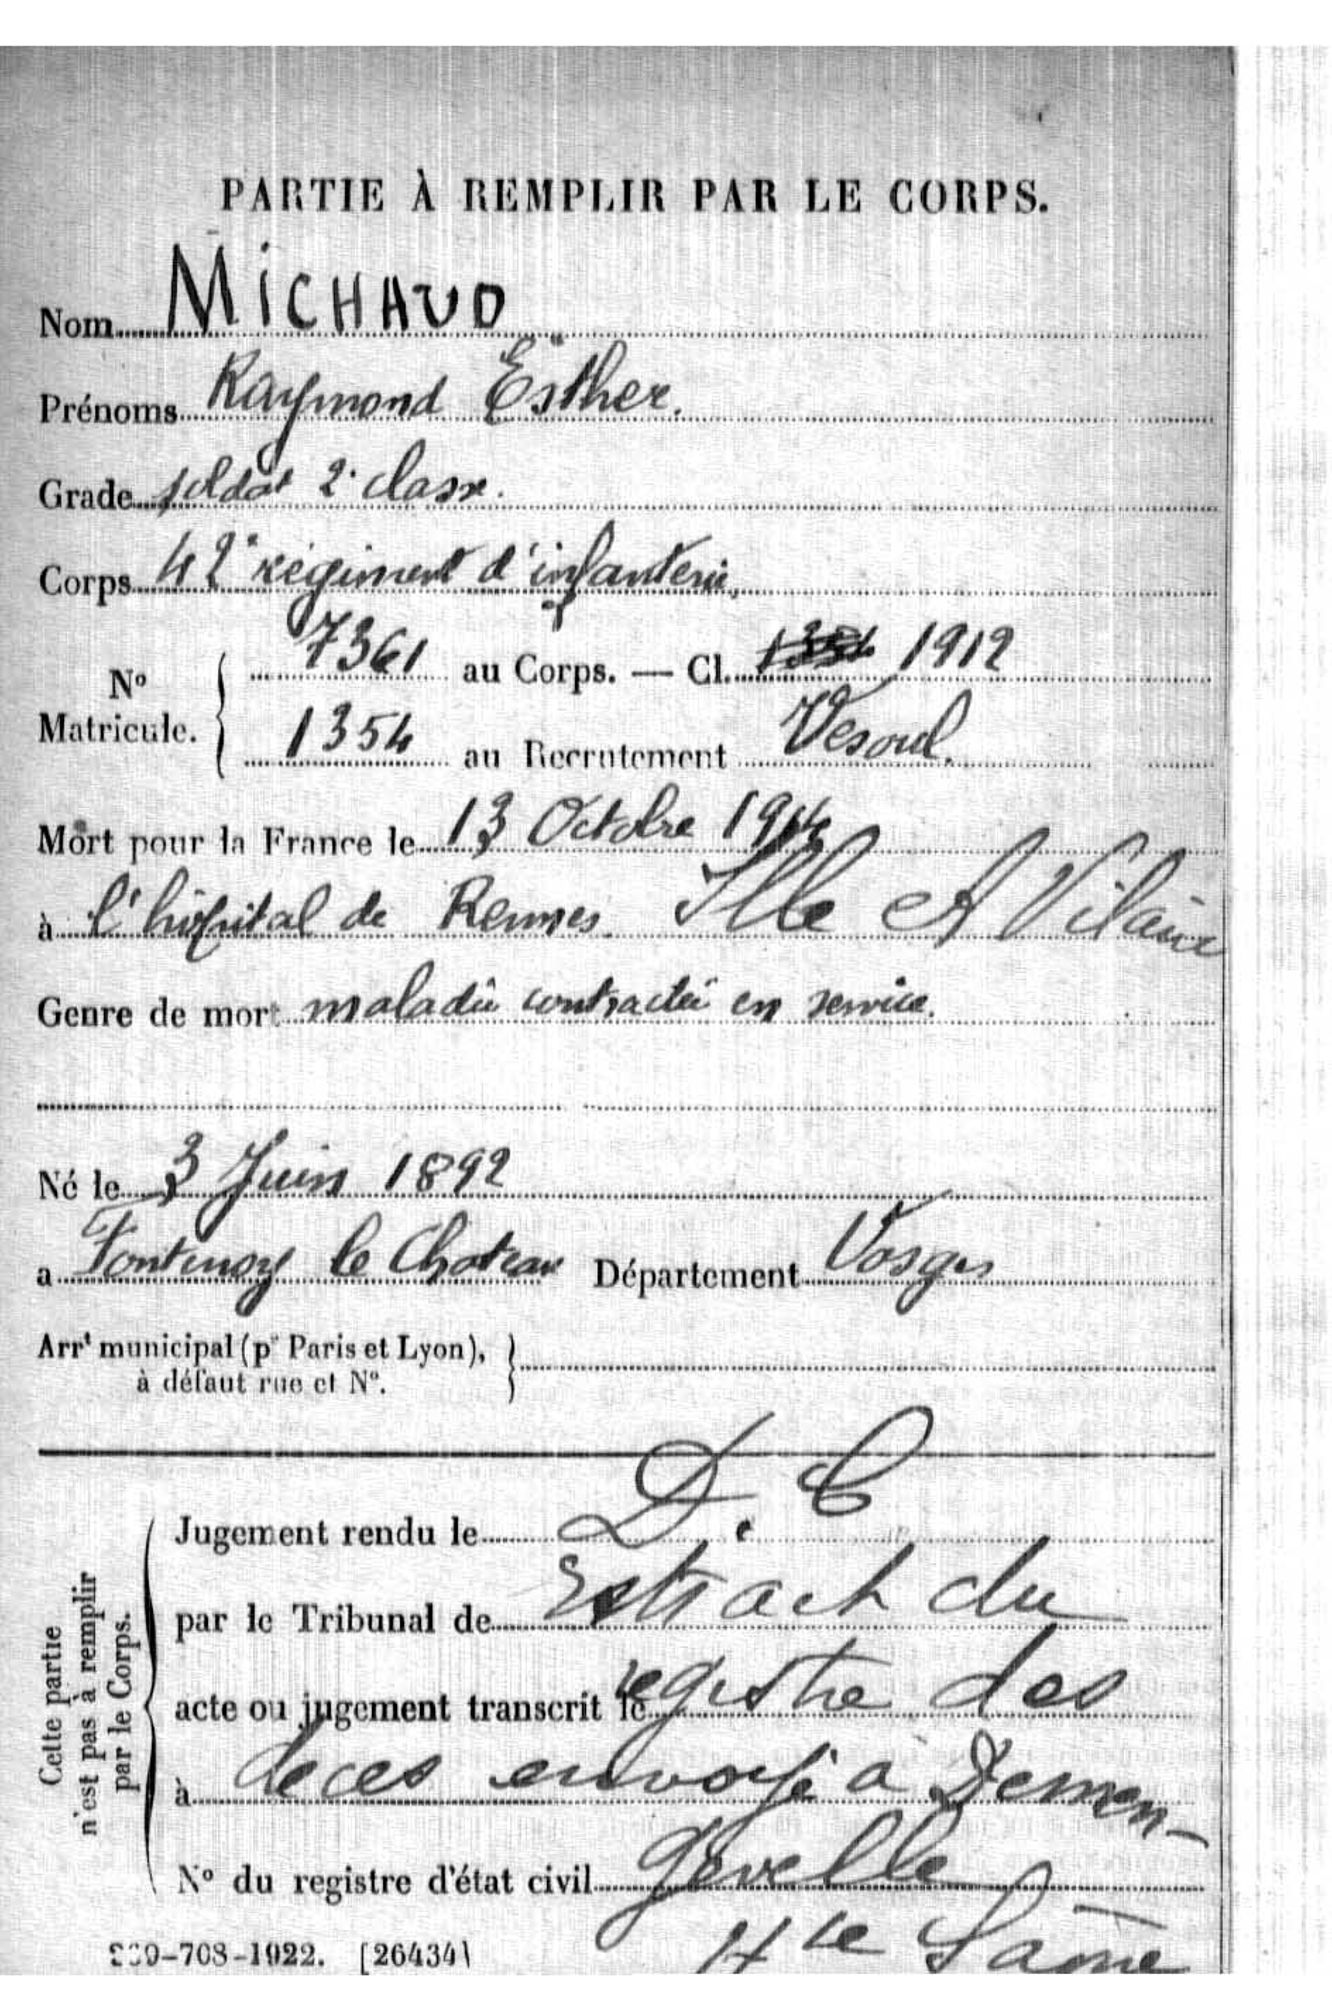 PARTIE À REMPLIR PAR LE CORPS.
Nom MICHAUD
Prénoms Raymond Esther.
Grade soldat 2e classe.
Corps 42e régiment d'infanterie.
No Matricule. { 7361 au Corps. — Cl. 1354 1912
1354 au Recrutement Vesoul.
Mort pour la France le 13 Octobre 1914
à l'hôpital de Rennes. Ille et Vilaine
Genre de mort maladie contractée en service.
Né le 3 Juin 1892
a Fontenoy le Chateau Département Vosges
Arrt municipal (pr Paris et Lyon), }
à défaut rue et No.
Cette partie
n'est pas à remplir
par le Corps.
Jugement rendu le D. C
par le Tribunal de Extrait du
acte ou jugement transcrit le registre des
à deces envoyé a Demen-
No du registre d'état civil gevelle
Hte Saône
-708-1922. [26434]